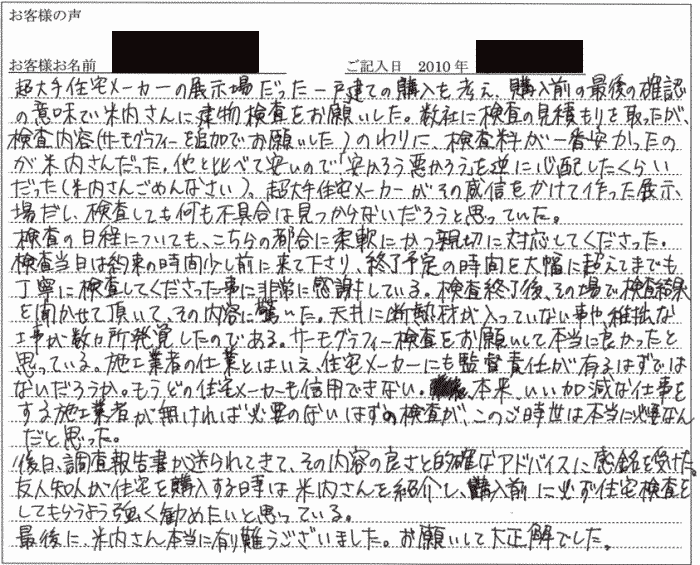 お客様の声
お客様お名前 ご記入日 2010年
超大手住宅メーカーの展示場だった一戸建ての購入を考え、購入前の最後の確認
の意味で米内さんに建物検査をお願いした。数社に検査の見積もりを取ったが、
検査内容(サーモグラフィーを追加でお願いした)のわりに、検査料が一番安かったの
が米内さんだった。他と比べて安いので「安かろう悪かろう」を逆に心配したくらい
だった(米内さんごめんなさい)。超大手住宅メーカーがその威信をかけて作った展示
場だし、検査しても何も不具合は見つからないだろうと思っていた。
検査の日程についても、こちらの都合に柔軟にかつ親切に対応してくださった。
検査当日は約束の時間少し前に来て下さり、終了予定の時間を大幅に超えてまでも
丁寧に検査してくださった事に非常に感謝している。検査終了後、その場で検査結果
を聞かせて頂いて、その内容に驚いた。天井に断熱材が入っていない事や雑な
工事が数ヵ所発覚したのである。サーモグラフィー検査をお願いして本当に良かったと
思っている。施工業者の仕業とはいえ、住宅メーカーにも監督責任が有るはずでは
ないだろうか。もうどの住宅メーカーも信用できない。本来、いい加減な仕事を
する施工業者が無ければ必要のないはずの検査が、このご時世は本当に必要なん
だと思った。
後日、調査報告書が送られてきて、その内容の良さと的確なアドバイスに感銘を受けた。
友人知人が住宅を購入する時は米内さんを紹介し、購入前に必ず住宅検査を
してもらうよう強く勧めたいと思っている。
最後に、米内さん本当に有り難うございました。お願いして大正解でした。